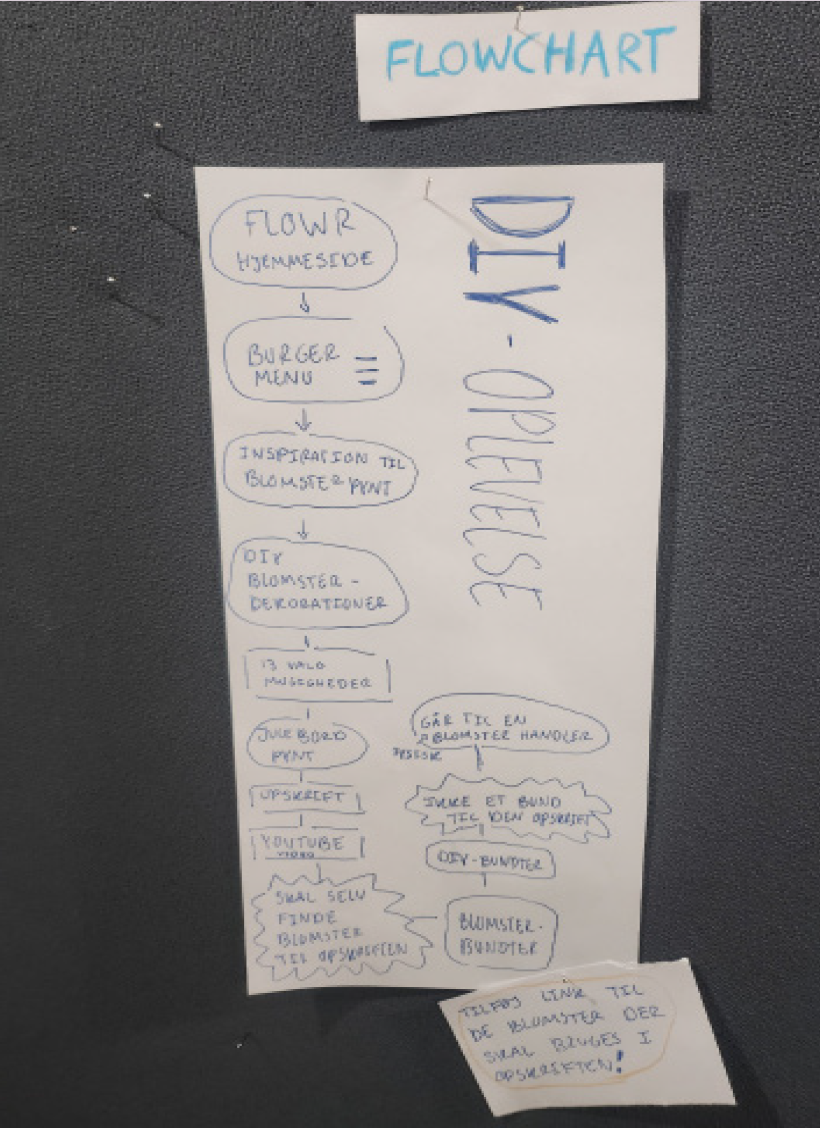 FLOWCHART
DIY-OPLEVELSE
FLOWR
HJEMMESIDE
BURGER
MENU
INSPIRATION TIL
BLOMSTER PYNT
DIY
BLOMSTER-
DEKORATIONER
13 VALG
MULIGHEDER
JULEBORD
PYNT
OPSKRIFT
YOUTUBE
VIDEO
SKAL SELV
FINDE
BLOMSTER
TIL OPSKRIFTEN
BLOMSTER-
BUNDTER
DIY-BUNDTER
IKKE ET BUND
TIL DEN OPSKRIFT
GÅR TIL EN
BLOMSTER HANDLER
FYSISK
TILFØJ LINK TIL
DE BLOMSTER DER
SKAL BRUGES I
OPSKRIFTEN!